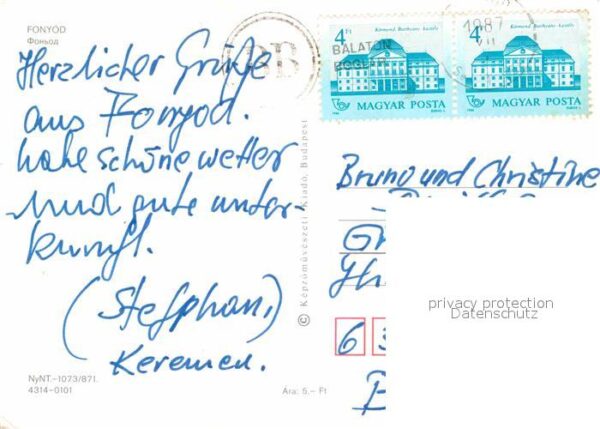 FONYÓD
Фоньод
Herzlicher Grüße
aus Fonyod.
habe schöne wetter
und gute unter-
kunft.
(Stefphan,)
Keremen.
NyNT.-1073/871.
4314-0101
Ára: 5,- Ft
© Képzőművészeti Kiadó, Budapest
BB
BALATON
BOGLÁR
1987
VII
4Ft
Körmend, Batthyány-kastély
MAGYAR POSTA
1986
4Ft
Körmend, Batthyány-kastély
MAGYAR POSTA
1986
Bruno und Christine
6 3
privacy protection
Datenschutz